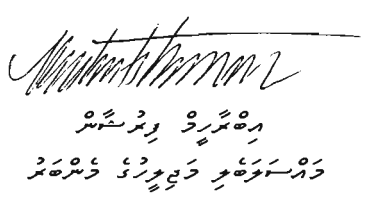 އިބްރާހީމް ފިރުޝާން
މައްސަލަބެލި މަޖިލީހުގެ މެންބަރު